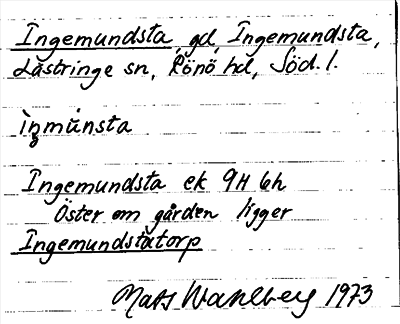 Ingemundsta, gd, Ingemundsta,
Lästringe sn, Rönö hd, Söd. l.
ìŋmúnsta
Ingemundsta ek 9H 6h
Öster om gården ligger
Ingemundstatorp
Mats Wahlberg 1973